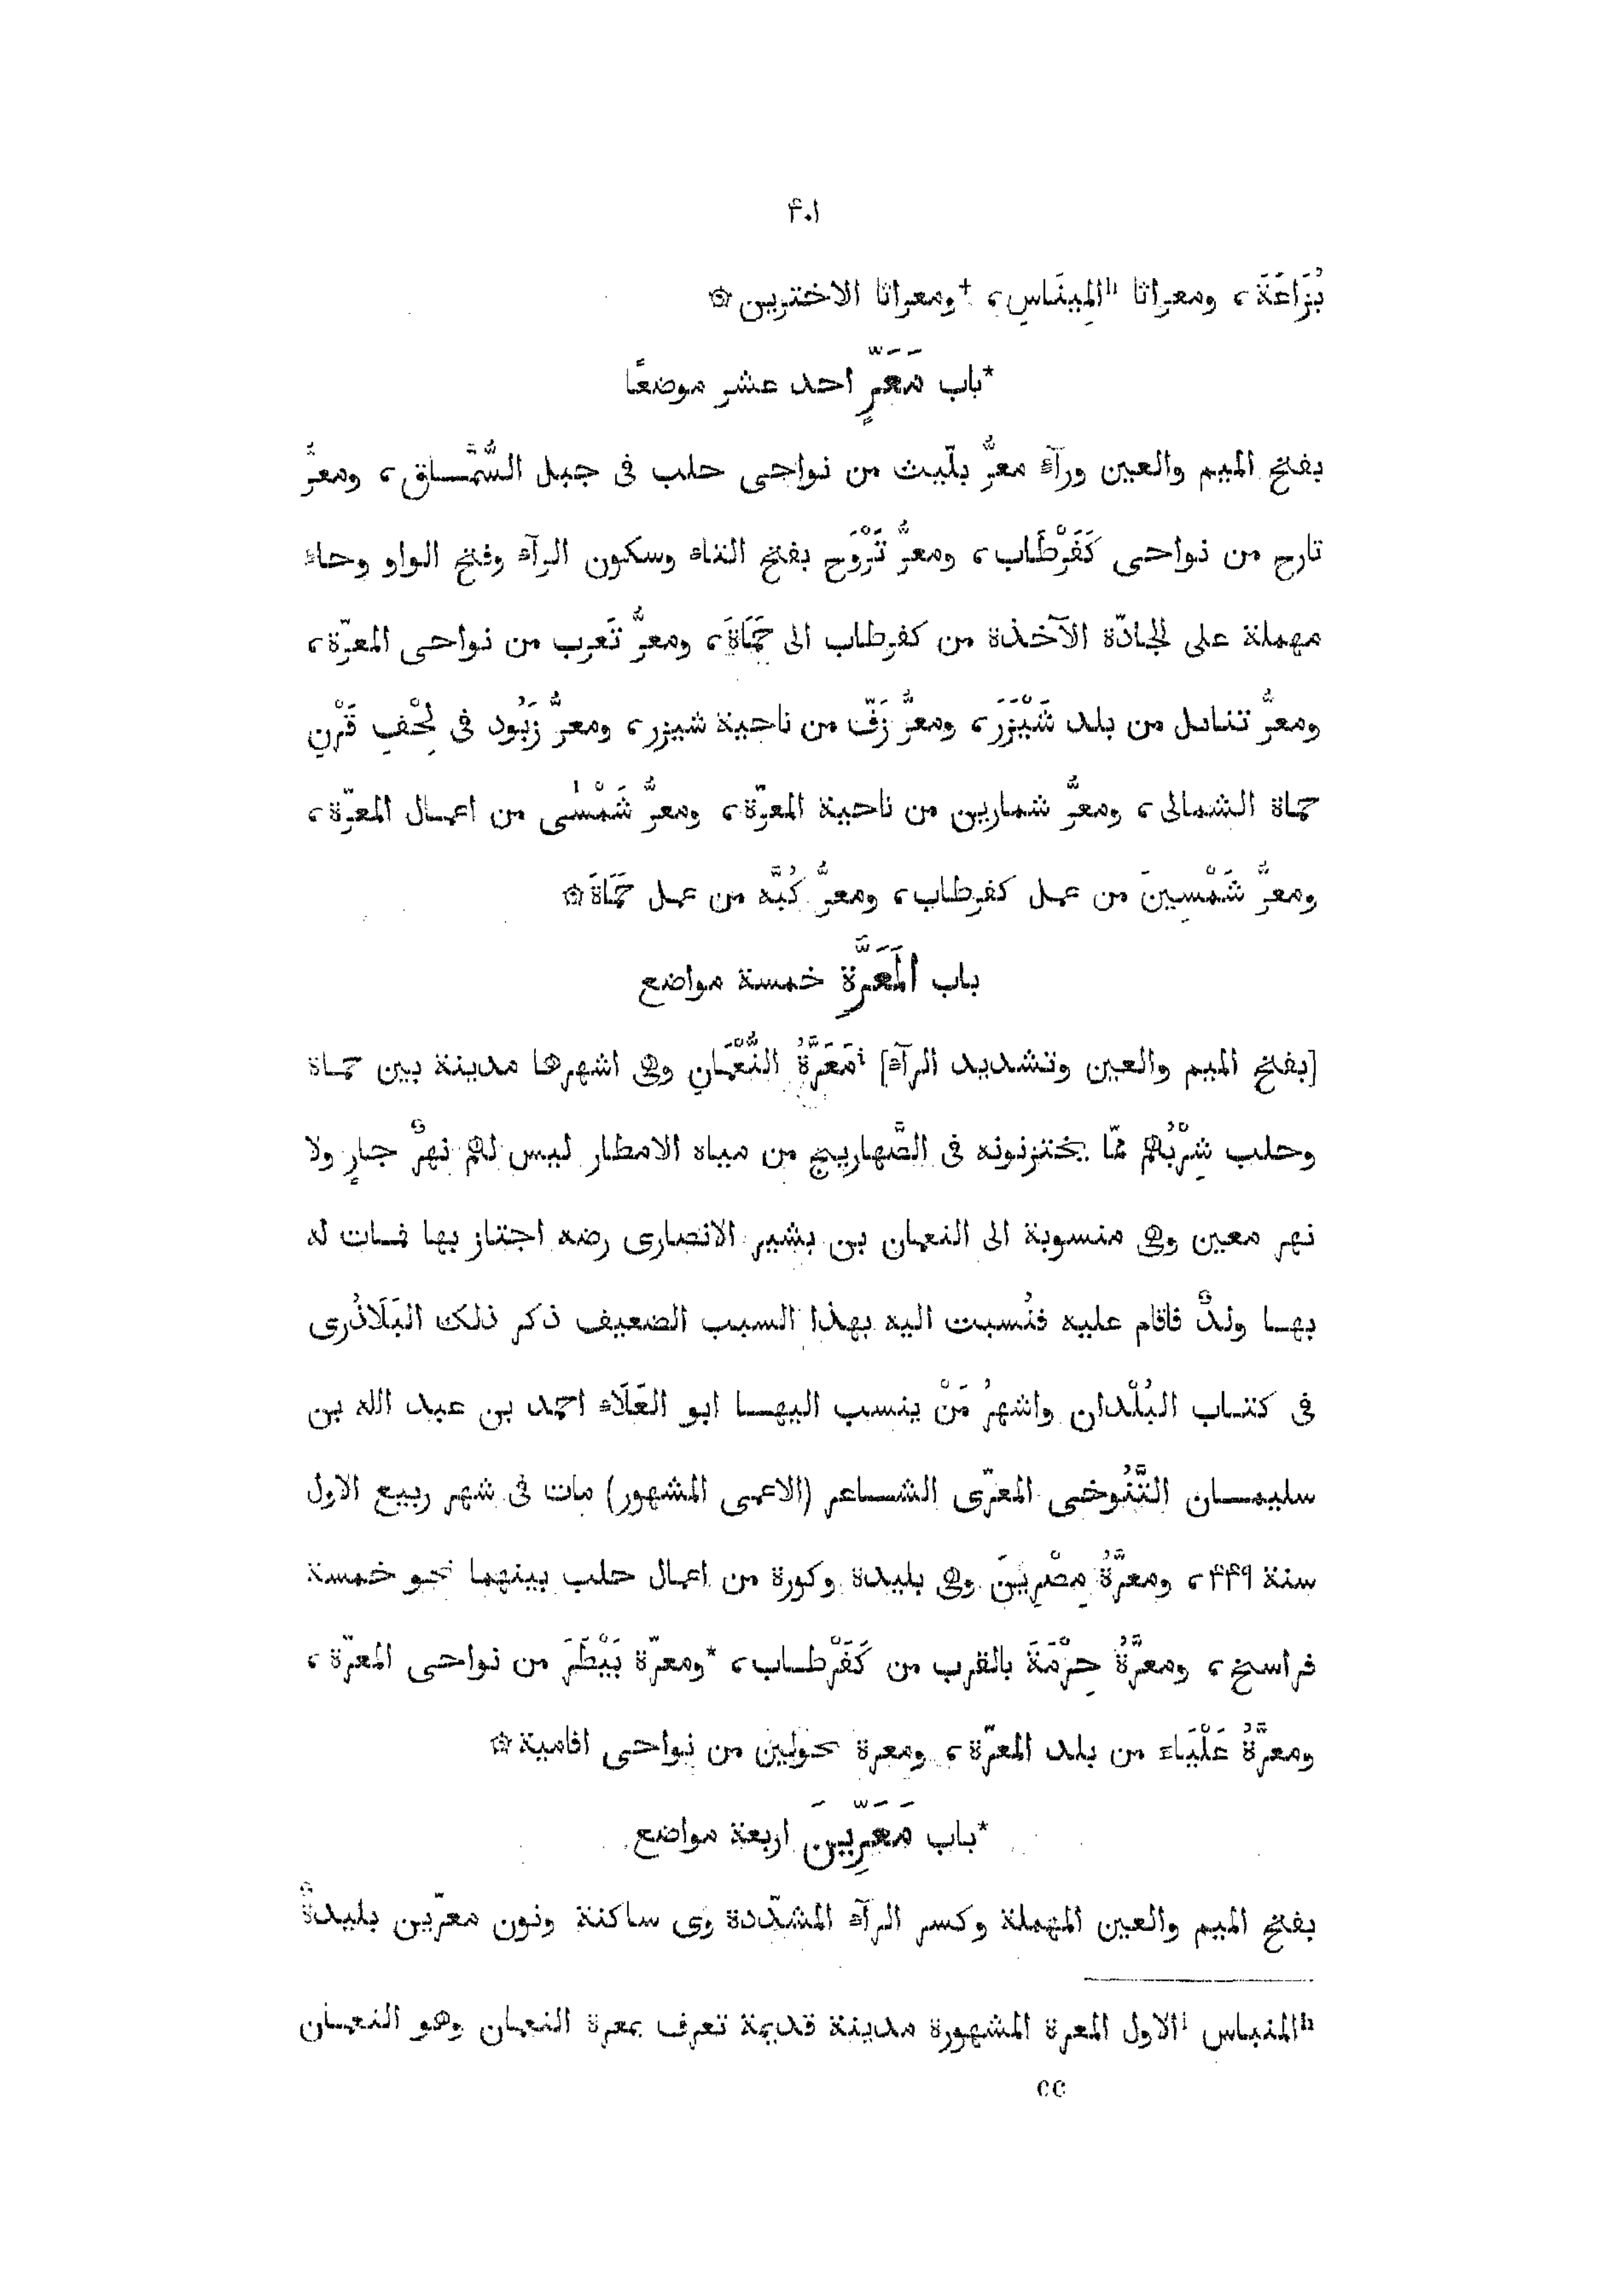 ۴۰۱
بُزَاعَةَ، ومعراثا <sup>h</sup>المِينَاسِ، †ومعراثا الاخترين ۞
*باب مَعَرٍّ احد عشر موضعًا
بفتح الميم والعين ورآء معرُّ بلّيث من نواحى حلب فى جبل السُّمَّــاق، ومعرُّ
تارح من نواحى كَفَرْطَاب، ومعرُّ تَرْوَح بفتح التاء وسكون الرآء وفتح الواو وحاء
مهملة على الجادّة الآخذة من كفرطاب الى حَمَاةَ، ومعرُّ تَعرب من نواحى المعرّة،
ومعرُّ تناسل من بلد شَيْزَرَ، ومعرُّ زَفّ من ناحية شيزر، ومعرُّ زَبُود فى لِحْفِ قَرْنِ
حماة الشمالى، ومعرُّ شمارين من ناحية المعرّة، ومعرُّ شَمْسٰى من اعمـال المعرّة،
ومعرُّ شَمْسِينَ من عمل كفرطاب، ومعرُّ كُبَّه من عمل حَمَاةَ ۞
باب المَعَرَّة خمسة مواضع
[بفتح الميم والعين وتشديد الرآء] <sup>i</sup>مَعَرَّةُ النُّعْمَانِ وهى اشهرها مدينة بين حمـاة
وحلب شِرْبُهم ممّا يختزنونه فى الصَّهاريج من مياه الامطار ليس لهم نهرٌ جارٍ ولا
نهر معين وهى منسوبة الى النعمان بن بشير الانصارى رضه اجتاز بها فمـات له
بهـا ولدٌ فاقام عليه فنُسبت اليه بهذا السبب الضعيف ذكر ذلك البَلَاذُرى
فى كتـاب البُلْدان واشهرُ مَنْ ينسب اليهـا ابو العَلَاء احمد بن عبد الله بن
سليمـان التَّنُوخى المعرّى الشـاعر (الاعمى المشهور) مات فى شهر ربيع الاول
سنة ۴۴۹، ومعرَّةُ مِصْرِينَ وهى بليدة وكورة من اعمال حلب بينهما نحو خمسة
فراسخ، ومعرَّةُ حِرْمَةَ بالقرب من كَفَرْطـاب، *ومعرّة بَيْطَرَ من نواحى المعرّة،
ومعرَّةُ عَلْيَاء من بلد المعرّة، ومعرة نحولين من نواحى افامية ۞
*باب مَعَرِّينَ اربعة مواضع
بفتح الميم والعين المهملة وكسر الرآء المشدّدة وى ساكنة ونون معرّين بليدةٌ
<sup>h</sup>المنباس <sup>i</sup>الاول المعرة المشهورة مدينة قديمة تعرف بمعرة النعمان وهو النعمـان